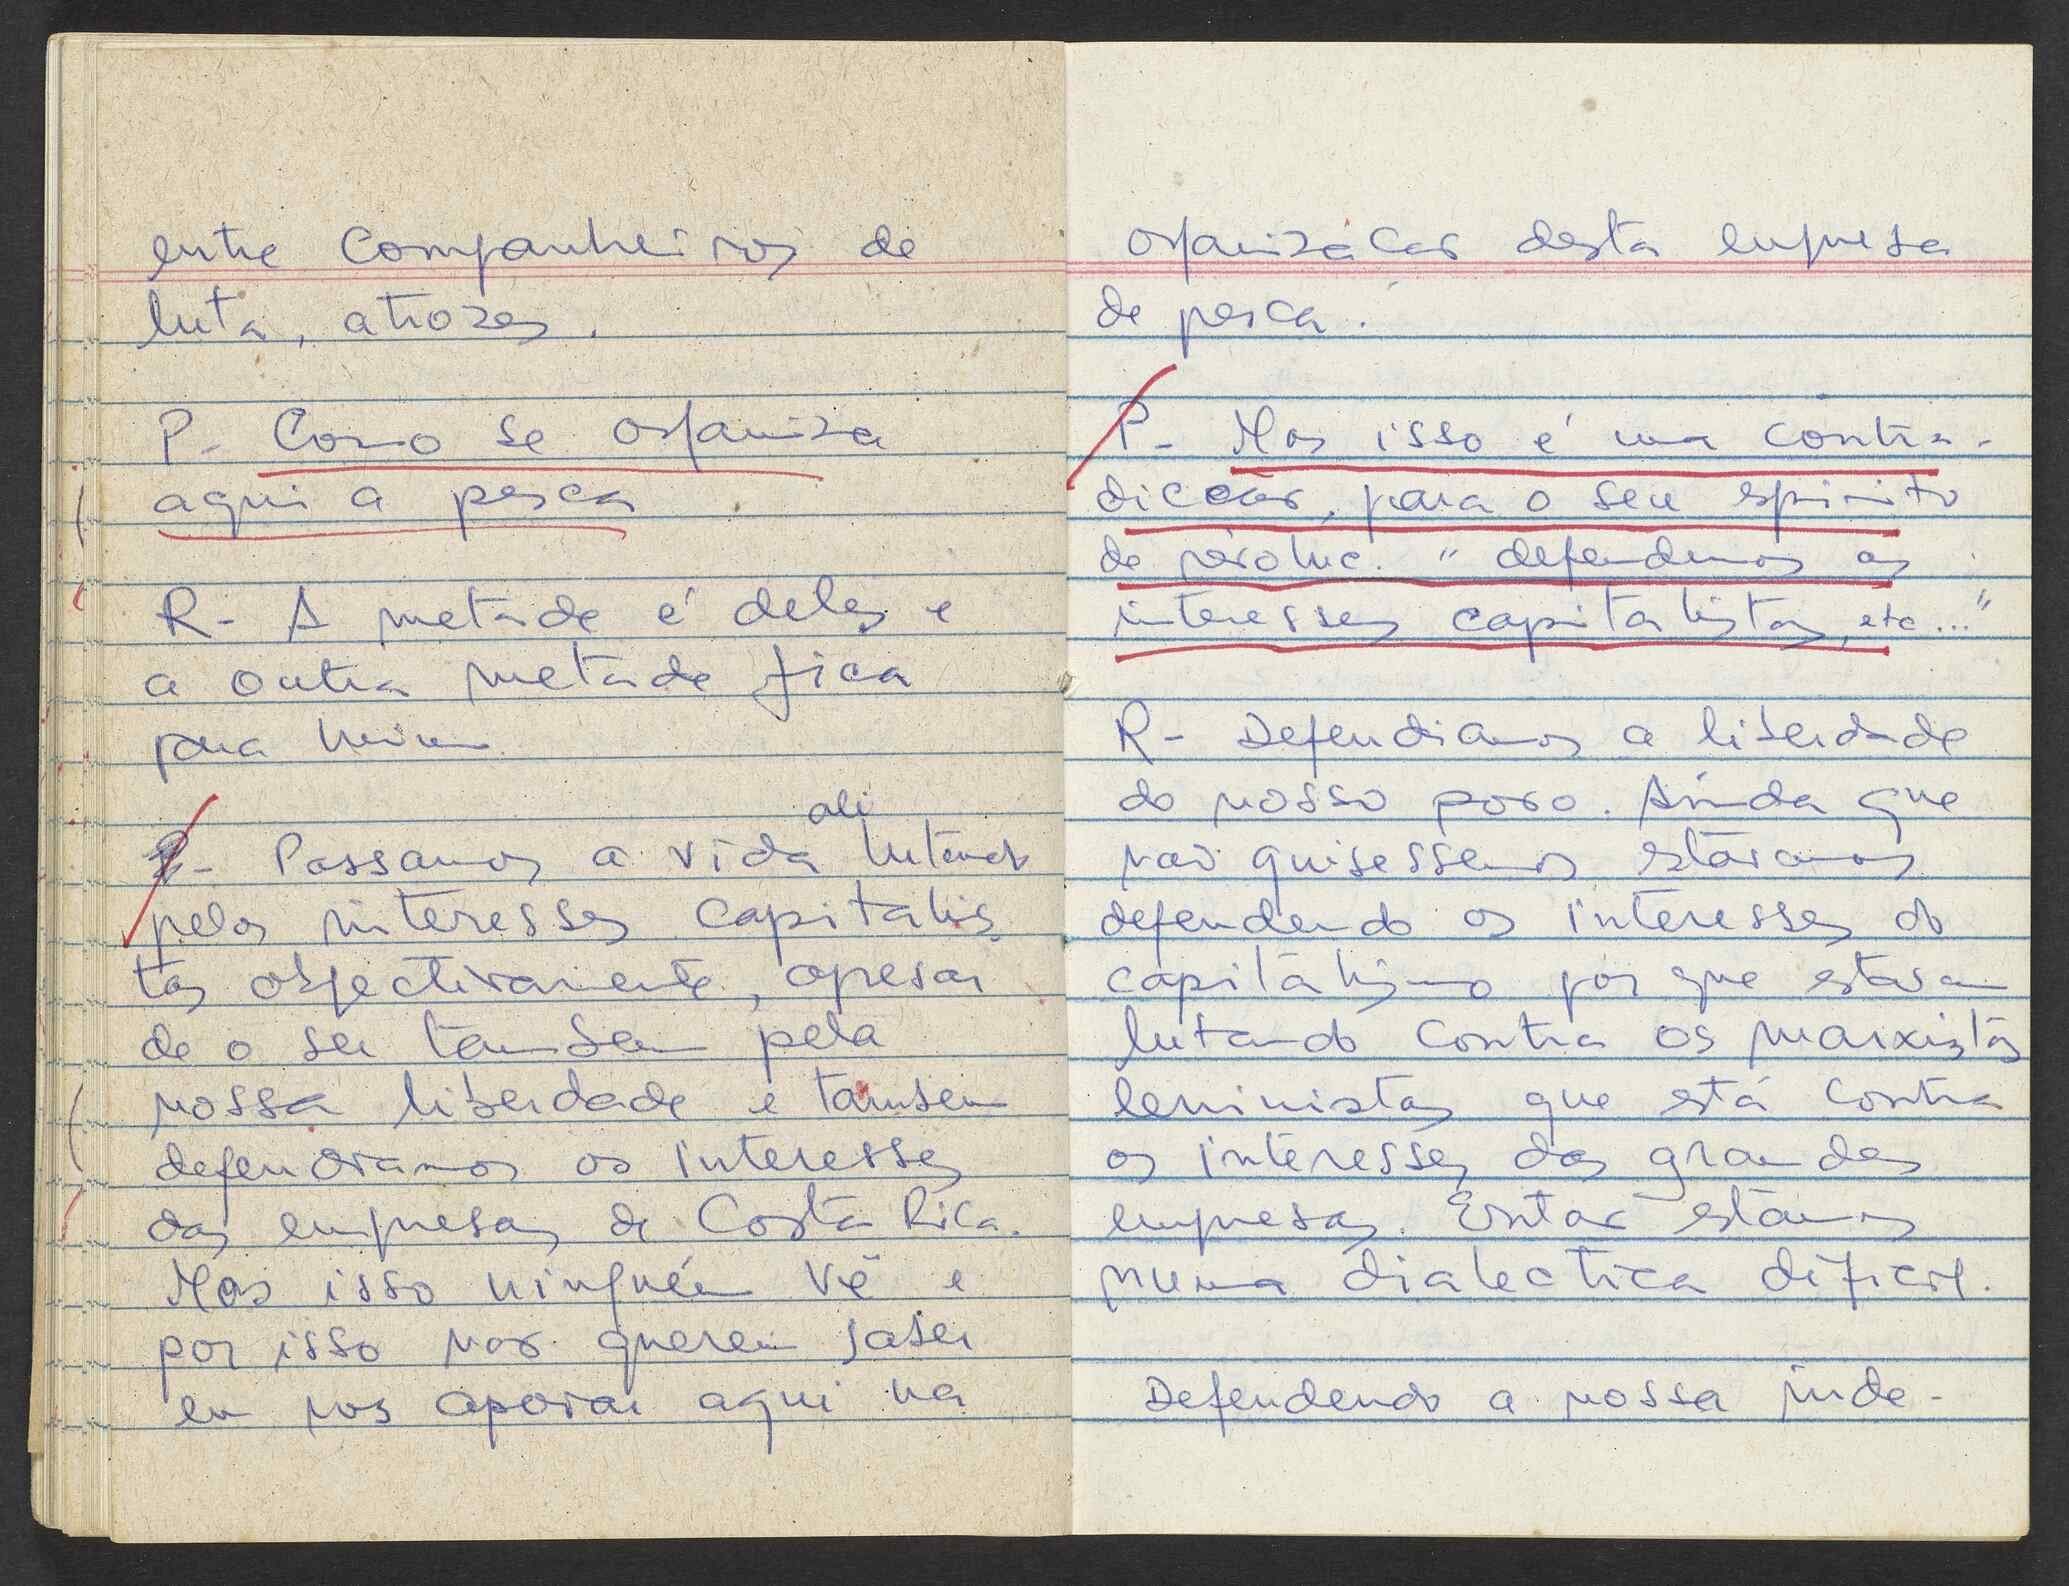 entre companheiros de
luta, atrozes.
P- Como se organiza
aqui a pesca
R- A metade é deles e
a outra metade fica
para mim
ali
R- Passamos a vida lutando
pelos interesses capitalis
tas objectivamente, apesar
de o ser tambem pela
nossa liberdade e tambem
defendiamos os interesses
das empresas de Costa Rica.
Mas isso ninguém vê e
por isso nao querem saber
em nos apoiar aqui na
organizacao desta empresa
de pesca.
P- Mas isso é uma contra-
diccao, para o seu espirito
de révoluc. "defendemos os
interesses capitalistas, etc..."
R- Defendiamos a liberdade
do nosso povo. Ainda que
nao quisessemos estávamos
defendendo os interesses do
capitalismo por que estavam
lutando contra os marxistas
leninistas que está contra
os interesses das grandes
empresas. Entao estamos
numa dialectica dificil.
Defendendo a nossa inde-